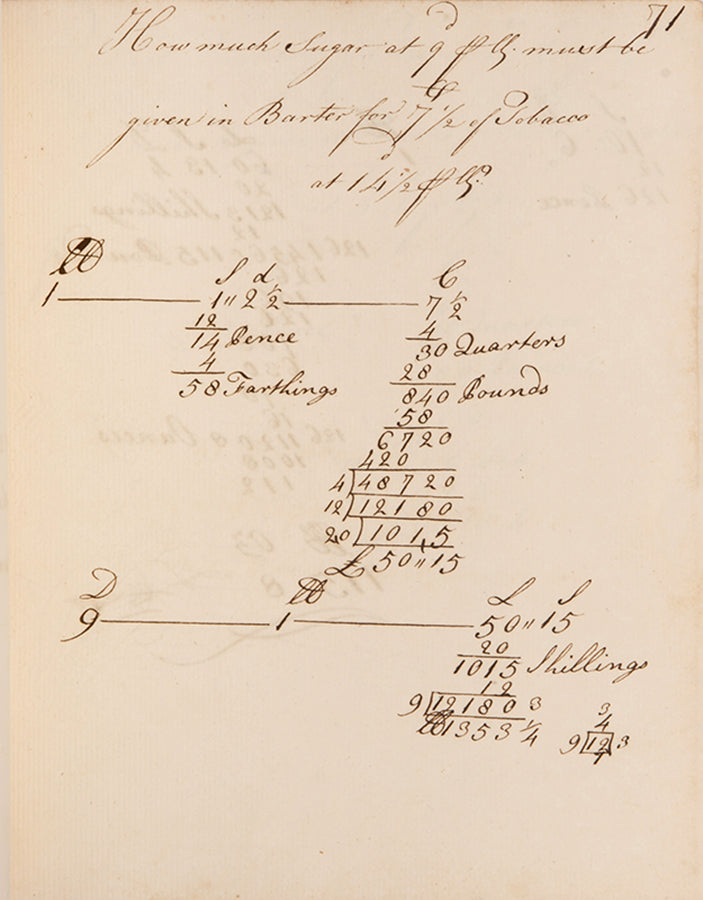 71
d
How much Sugar at 9 ℔ must be
C
given in Barter for 7 1/2 of Tobacco
d
at 14 1/2 ℔?
℔ S d C
1 1 " 2 1/2 7 1/2
12 4
14 Pence 30 Quarters
4 28
58 Farthings 840 Pounds
58
6720
420
4)48720
12)12180
20)1015
£ 50 " 15
D ℔ £ S
9 1 50 " 15
20
1015 Shillings
12
9)12180 3
℔ 1353 1/4
3
4
9)12 3
1